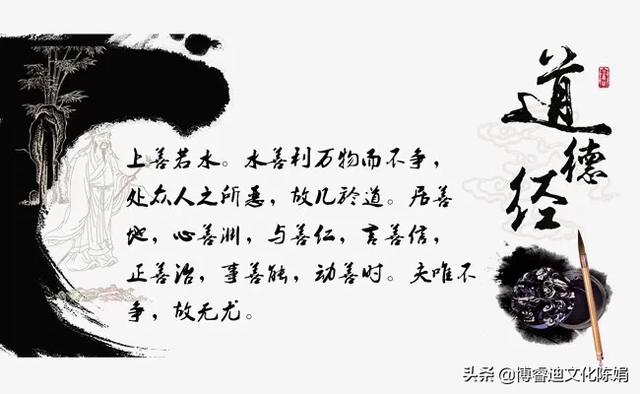 上善若水。水善利万物而不争，
处众人之所恶，故几於道。居善
地，心善渊，与善仁，言善信，
正善治，事善能，动善时。夫唯不
争，故无尤。
道德经
头条 @博睿迪文化陈娟